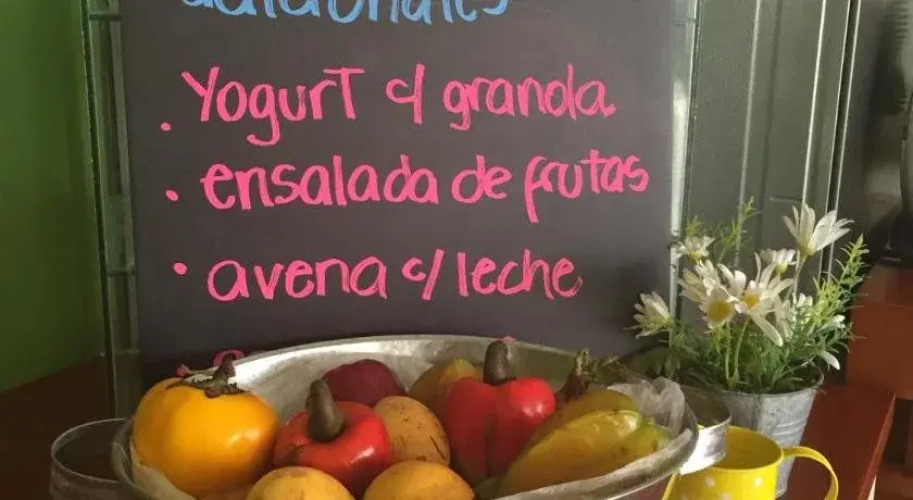 adicionales
. Yogurt c/ granola.
. ensalada de frutas
• avena c/ leche